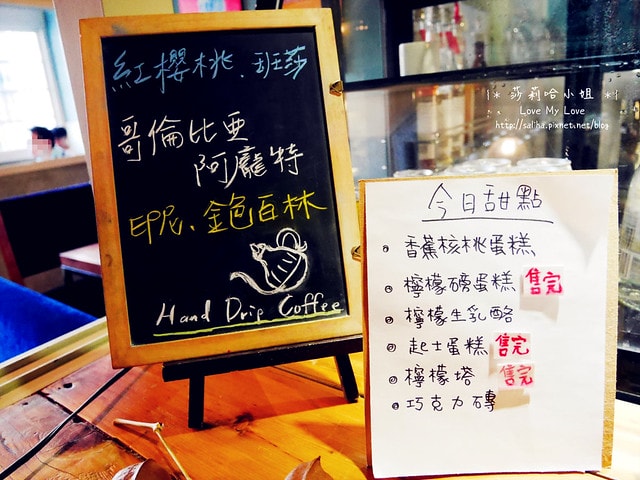 紅櫻桃、班莎
哥倫比亞
阿龐特
印尼、金色百林
Hand Drip Coffee
|* 莎莉哈小姐 *|
Love My Love
http://saliha.pixnet.net/blog
今日甜點
香蕉核桃蛋糕
檸檬磅蛋糕 售完
檸檬生乳酪
起士蛋糕 售完
檸檬塔 售完
巧克力磚